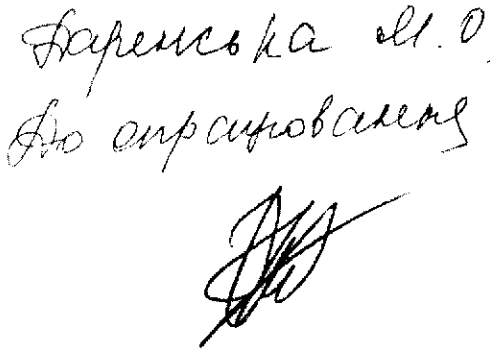 Даренська М.О.
До опрацювання